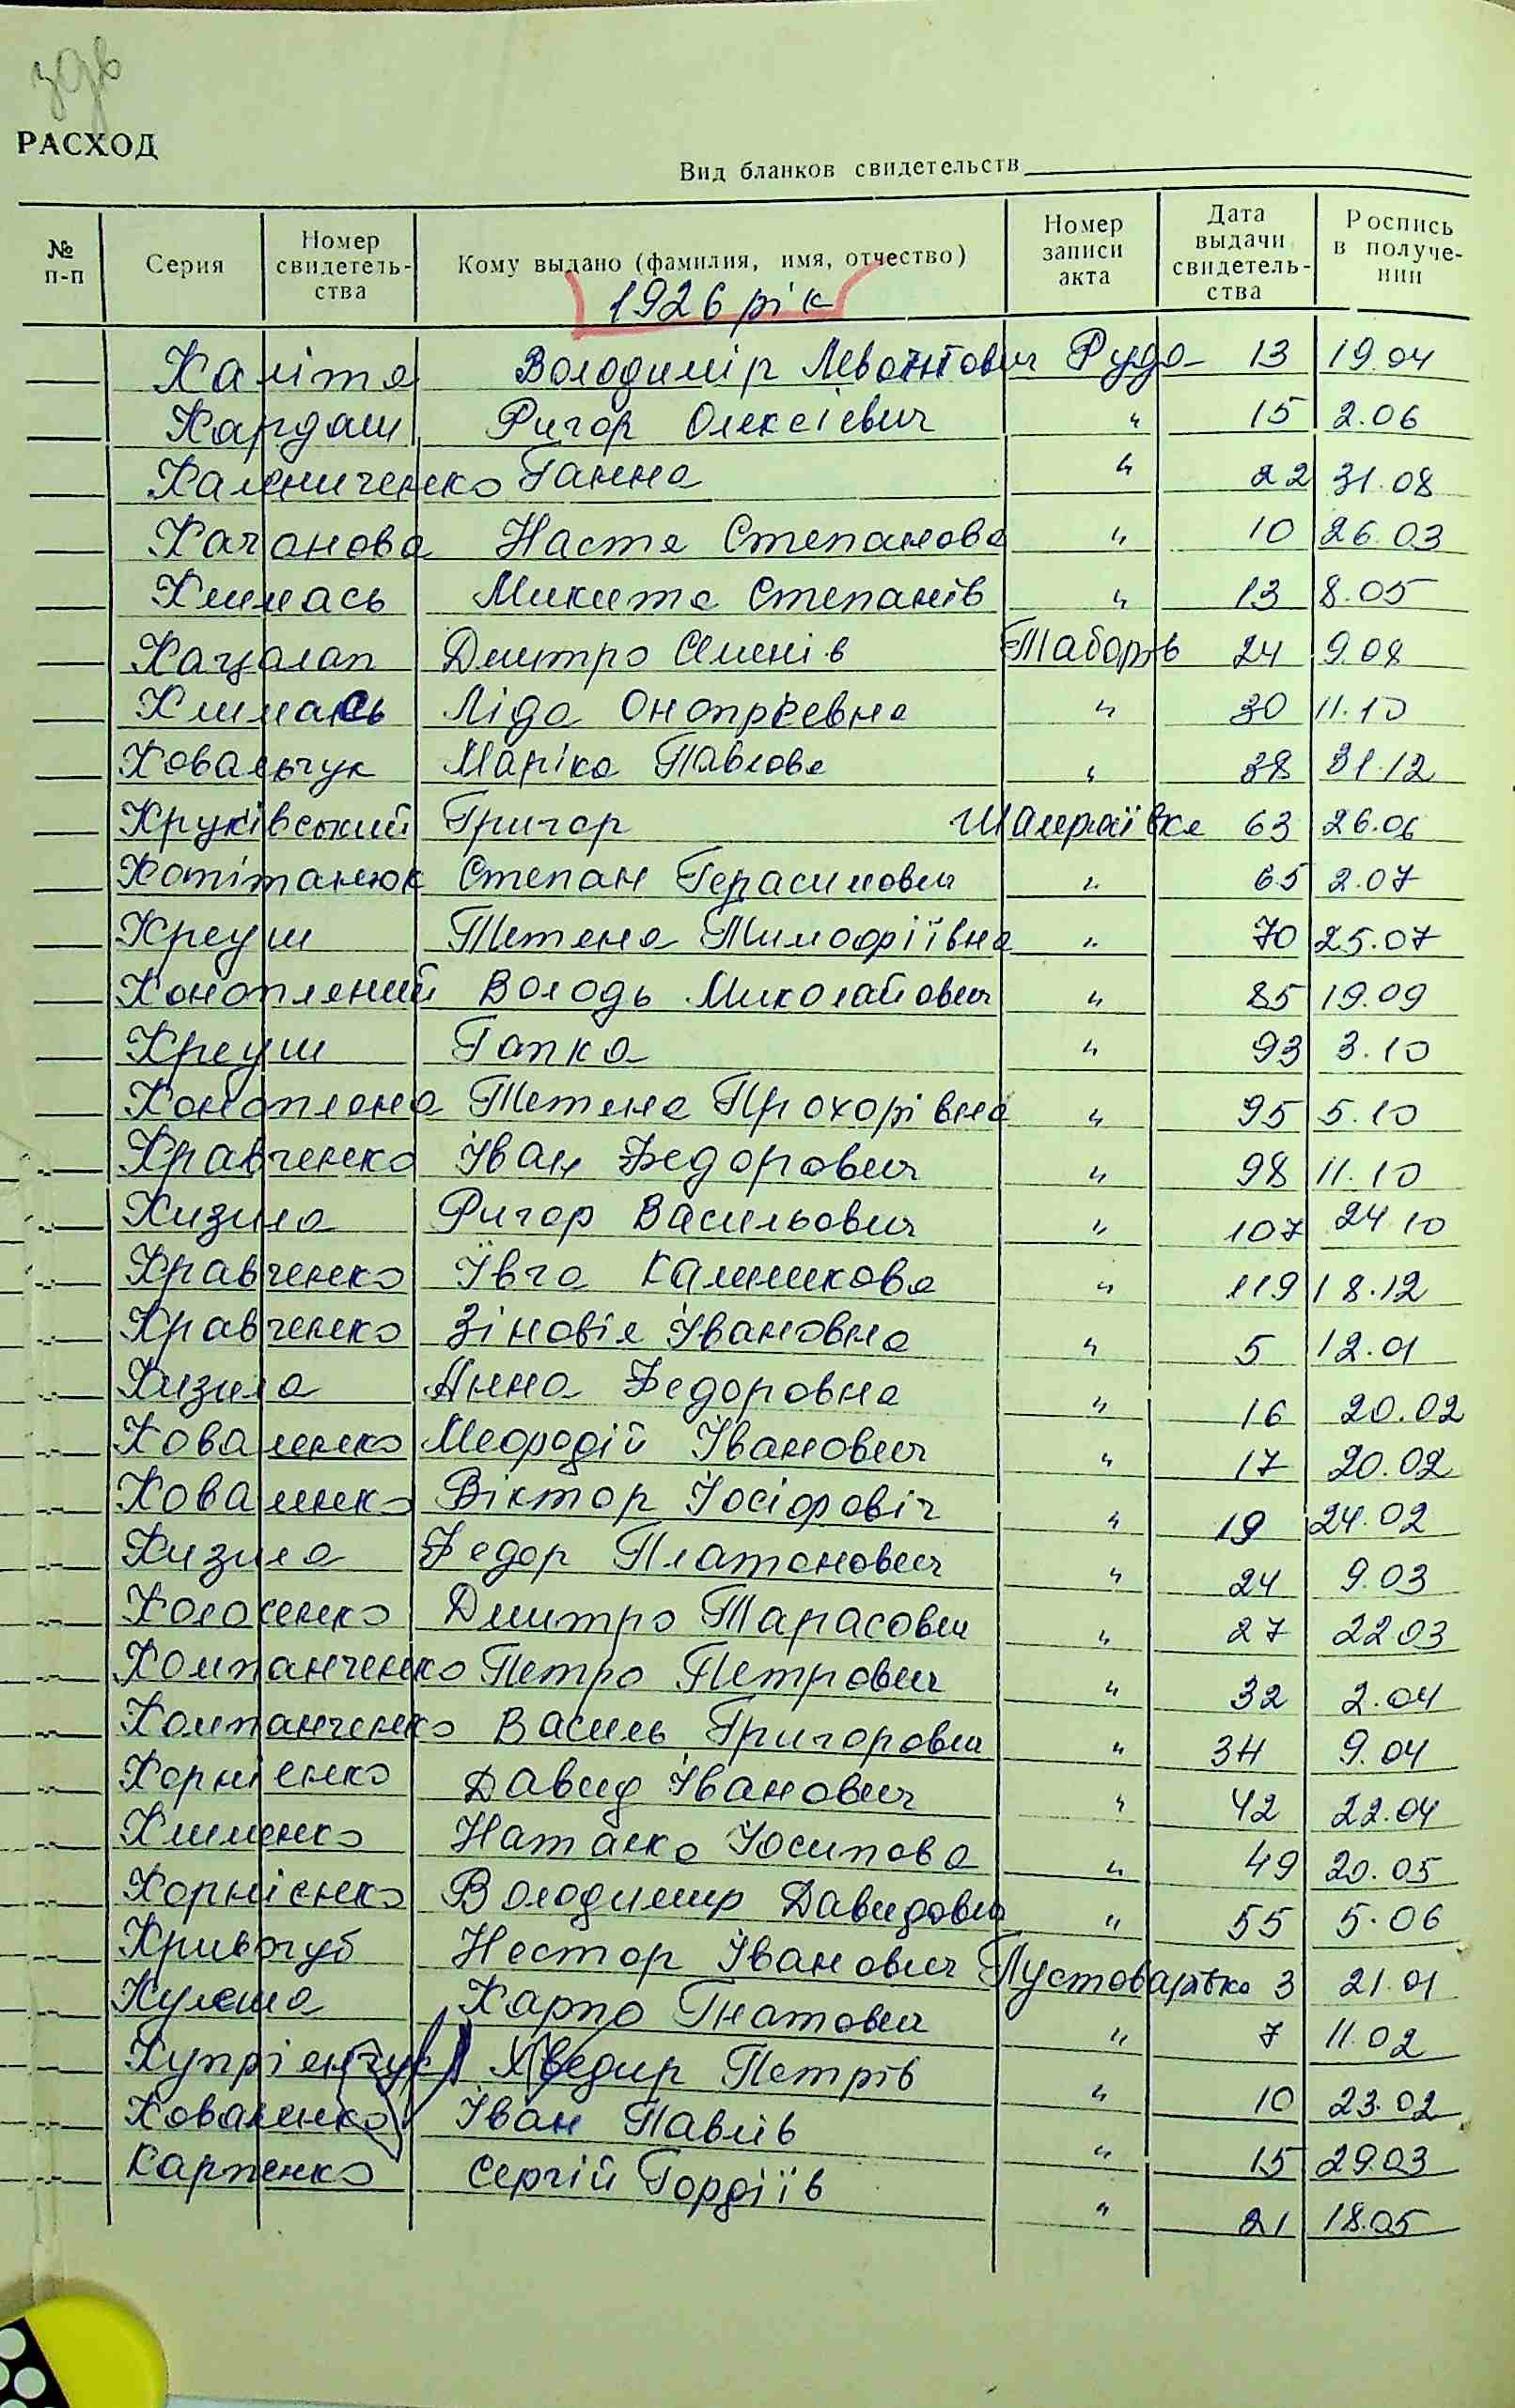 здв
РАСХОД
Вид бланков свидетельств
№ п-п Серия Номер свидетель-ства Кому выдано (фамилия, имя, отчество) Номер записи акта Дата выдачи свидетель-ства Роспись в получе-нии
1926 рік
Каліта Володимір Левонтович Руда 13 19.04
Кардаш Ригор Олексієвич " 15 2.06
Калениченко Ганна " 22 31.08
Качанова Настя Степанова " 10 26.03
Климась Микита Степанів " 13 8.05
Кацалап Дмитро Семенів Таборів 24 9.08
Климась Ліда Онопрієвна " 30 11.10
Ковальчук Маріка Павлова " 38 31.12
Круківський Григор Шамраївка 63 26.06
Котітанюк Степан Герасимович " 65 2.07
Креуш Тетена Тимофіївна " 70 25.07
Конопляний Володь Миколайович " 85 19.09
Креуш Гапка " 93 3.10
Конопляна Тетяна Прохорівна " 95 5.10
Кравченко Іван Федорович " 98 11.10
Кизила Ригор Васильович " 107 24.10
Кравченко Ївга Калникова " 119 18.12
Кравченко Зіновія Івановна " 5 12.01
Кизила Анна Федоровна " 16 20.02
Коваленко Мефодій Іванович " 17 20.02
Коваленко Віктор Йосіфовіч " 19 24.02
Кизила Федор Платонович " 24 9.03
Колосенко Дмитро Тарасович " 27 22.03
Компанченко Петро Петрович " 32 2.04
Компанченко Василь Григорович " 34 9.04
Корнієнко Давид Іванович " 42 22.04
Клименко Наталка Йосипова " 49 20.05
Корнієнко Володимир Давидович " 55 5.06
Кривогуб Нестор Іванович Пустоварівка 3 21.01
Кулеша Карпо Гнатович " 7 11.02
Купріенчук Хведир Петрів " 10 23.02
Коваленко Іван Павлів " 15 29.03
Карпенко Сергій Гордіїв " 21 18.05